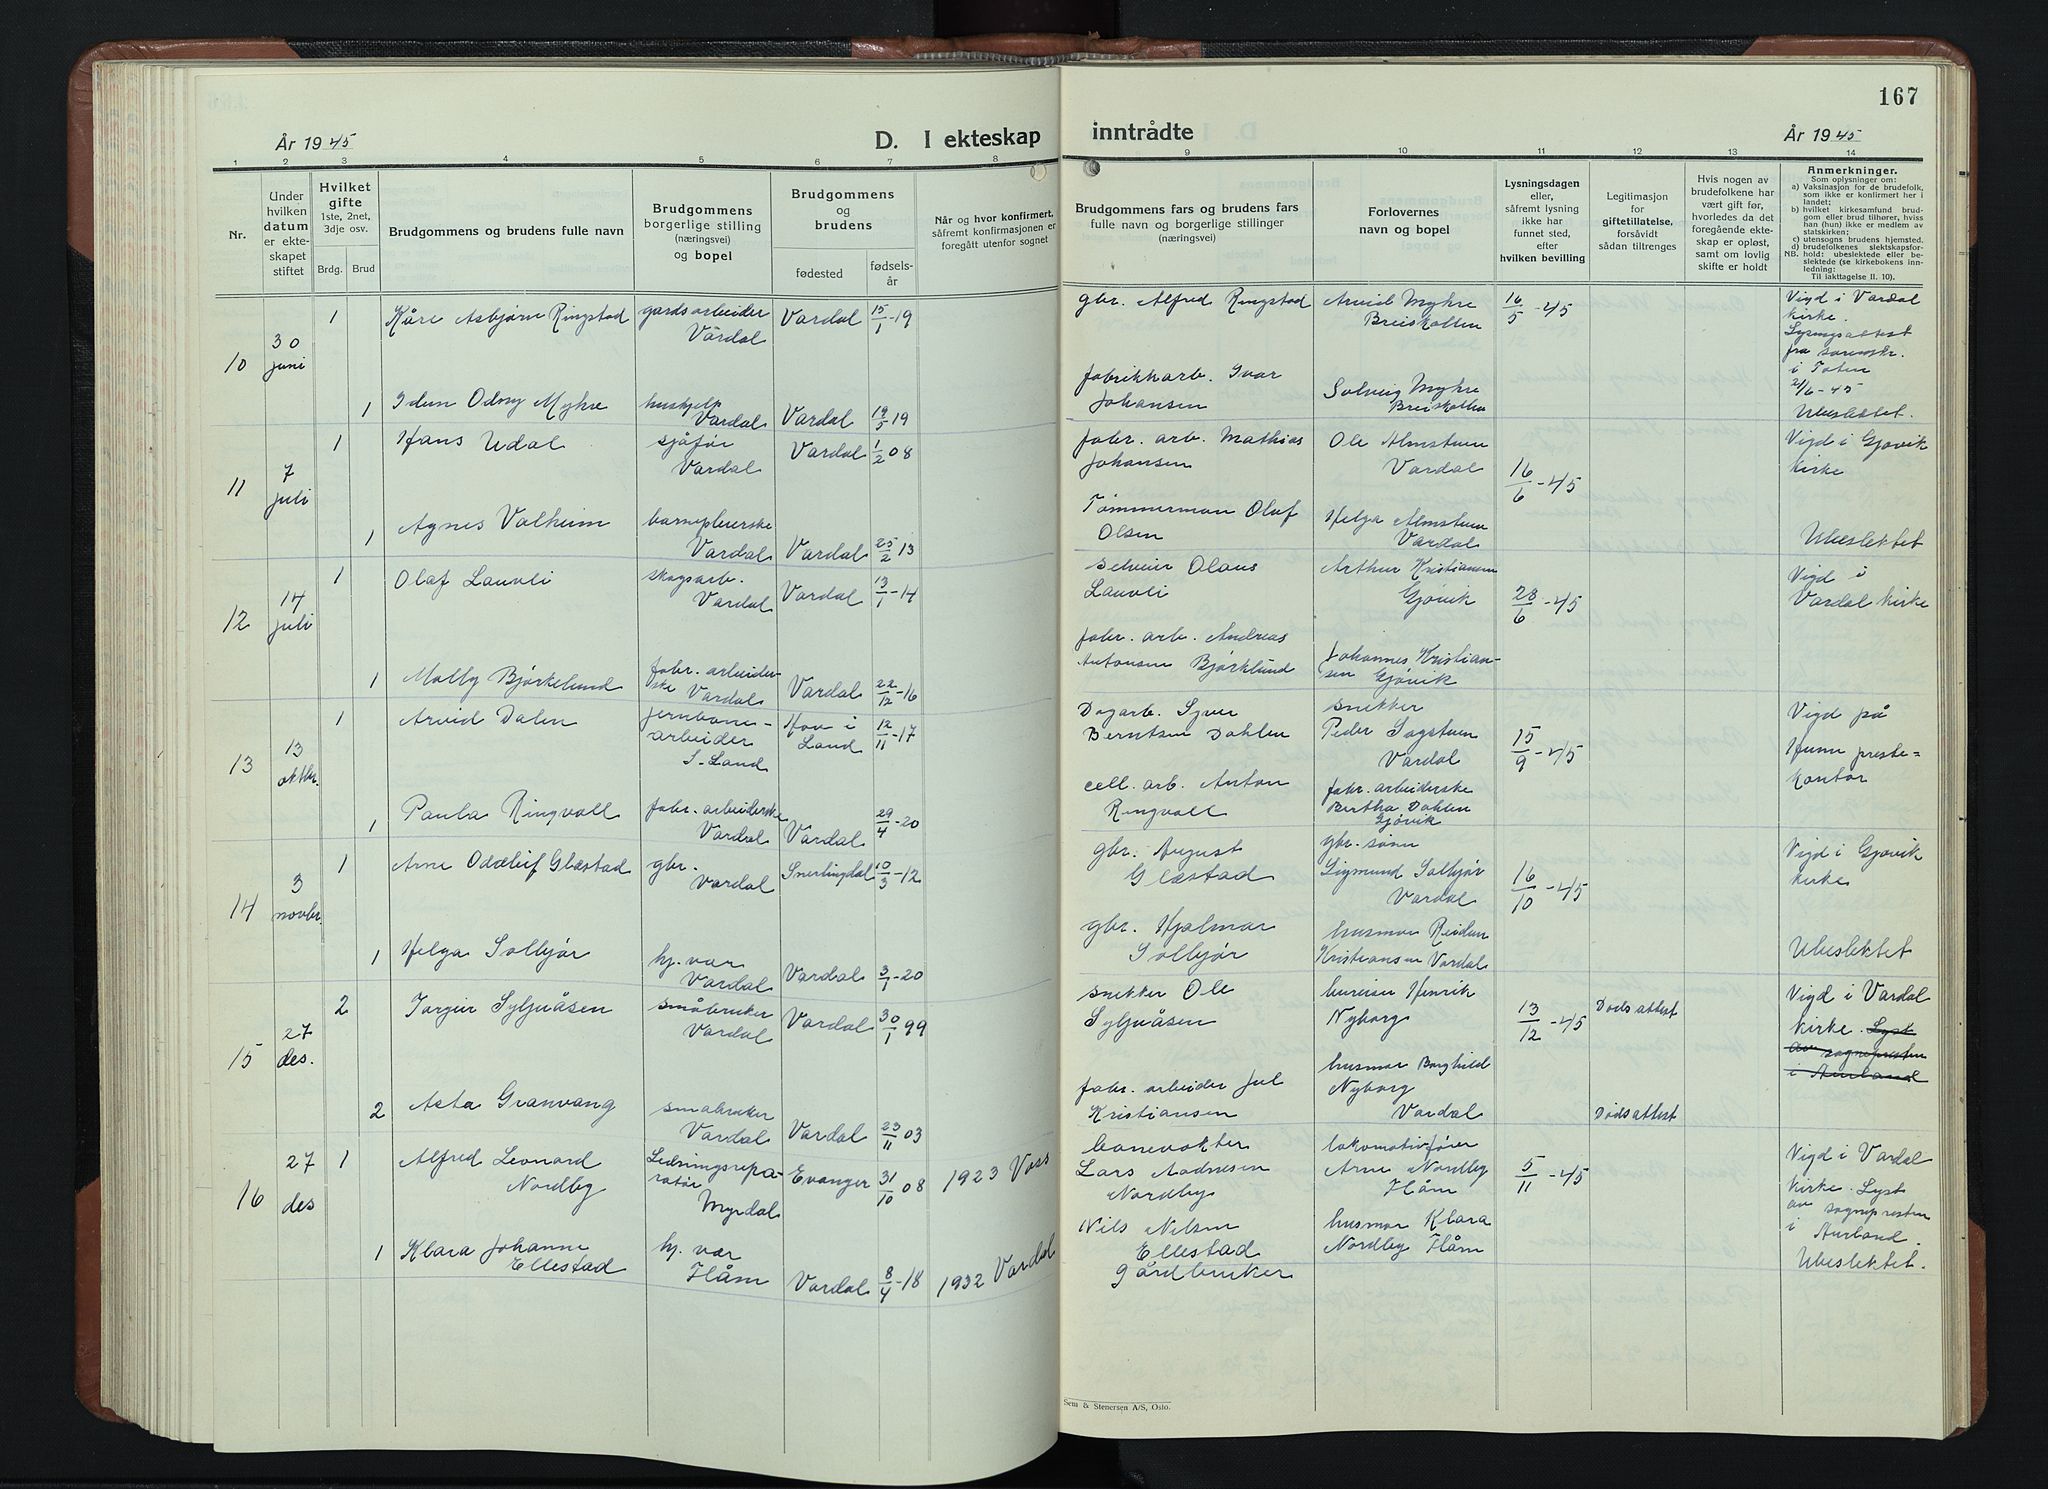 167
År 1945
D. I ekteskap
inntrådte
År 1945
1 2 3 4 5 6 7 8 9 10 11 12 13 14
Nr.
Under
hvilken
datum
er ekte-
skapet
stiftet
Hvilket
gifte
1ste, 2net,
3dje osv.
Brdg. Brud
Brudgommens og brudens fulle navn
Brudgommens
borgerlige stilling
(næringsvei)
og bopel
Brudgommens
og
brudens
fødested
fødsels-
år
Når og hvor konfirmert,
såfremt konfirmasjonen er
foregått utenfor sognet
Brudgommens fars og brudens fars
fulle navn og borgerlige stillinger
(næringsvei)
Forlovernes
navn og bopel
Lysningsdagen
eller,
såfremt lysning
ikke har
funnet sted,
efter
hvilken bevilling
Legitimasjon
for
giftetillatelse,
forsåvidt
sådan tiltrenges
Hvis nogen av
brudefolkene har
vært gift før,
hvorledes da det
foregående ekte-
skap er opløst,
samt om lovlig
skifte er holdt
Anmerkninger.
Som oplysninger om:
a) Vaksinasjon for de brudefolk,
som ikke er konfirmert her i
landet;
b) hvilket kirkesamfund brud-
gom eller brud tilhører, hviss
han (hun) ikke er medlem av
statskirken;
c) utensogns brudens hjemsted.
d) brudefolkenes slektskapsfor-
hold: ubeslektede eller be-
slektede (se kirkebokens inn-
ledning:
Til iakttagelse II. 10).
NB.
10
30
juni
1
Kåre Asbjørn Ringstad
gardsarbeider
Vardal
Vardal
15/1-19
gbr. Alfred Ringstad
Arvid Myhre
Breiskallen
16/5-45
Vigd i Vardal
kirke.
Lysningsattest
fra sorenskr.
i Toten
21/6-45
Ubeslektet.
1
Idun Odny Myhre
hushjelp
Vardal
Vardal
19/5 19
fabrikkarb. Ivar
Johansen
Solveig Myhre
Breiskallen
11
7
juli
1
Hans Udal
sjåfør
Vardal
Vardal
1/2 08
fabr. arb. Mathias
Johansen
Ole Almstuen
Vardal
16/6-45
Vigd i Gjøvik
kirke
Ubeslektet
1
Agnes Valheim
barnepleierske
Vardal
Vardal
25/2 13
Tømmerman Olaf
Olsen
Helga Almstuen
Vardal
12
14
juli
1
Olaf Lauvli
skogsarb.
Vardal
Vardal
13/1-14
selveier Olaus
Lauvli
Arthur Kristiansen
Gjøvik
28/6-45
Vigd i
Vardal kirke
1
Molly Bjørkelund
fabr. arbeider-
ske Vardal
Vardal
22/12-16
fabr. arb. Andreas
Antonsen Bjørklund
Johannes Kristian-
sen Gjøvik
13
13
oktbr.
1
Arvid Dalen
jernbane-
arbeider
S-Land
Hov i
Land
12/11-17
Dagarb. Syver
Berntsen Dahlen
snekker
Peder Sagstuen
Vardal
15/9-45
Vigd på
Hunn preste-
kontor
1
Paula Ringvoll
fabr. arbeiderske
Vardal
Vardal
29/4-20
cell. arb. Anton
Ringvoll
fabr. arbeiderske
Bertha Dahlen
Gjøvik
14
3
novbr.
1
Arne Oddleif Glæstad
gbr.
Vardal
Snertingdal
10/3-12
gbr. August
Glæstad
gbr. sønn
Sigmund Solbjør
Vardal
16/10-45
Vigd i Gjøvik
kirke
Ubeslektet
1
Helga Solbjør
hj. vær
Vardal
Vardal
3/1-20
gbr. Hjalmar
Solbjør
husmor Reidun
Kristiansen Vardal
15
27
des.
2
Torgeir Syljuåsen
småbruker
Vardal
Vardal
30/1 99
snekker Ole
Syljuåsen
bureiser Henrik
Nyborg
13/12-45
Dødsattest
Vigd i Vardal
kirke. Lyst
av sognepresten
i Aurland
2
Asta Granvang
småbruker
Vardal
Vardal
23/11 03
fabr. arbeider Jul
Kristiansen
husmor Borghild
Nyborg
Vardal
Dødsattest
16
27
des
1
Alfred Leonard
Nordby
Ledningsrepa-
ratør
Myrdal
Evanger
31/10 08
1923 Voss
banevokter
Lars Aadnesen
Nordby
lokomotivfører
Arne Nordby
Flåm
5/11-45
Vigd i Vardal
kirke. Lyst
av sognepresten
i Aurland.
Ubeslektet.
1
Klara Johanne
Ellestad
hj. vær
Flåm
Vardal
8/4-18
1932 Vardal
Nils Nilsen
Ellestad
Gårdbruker
husmor Klara
Nordby Flåm
Sem & Stenersen A/S, Oslo.